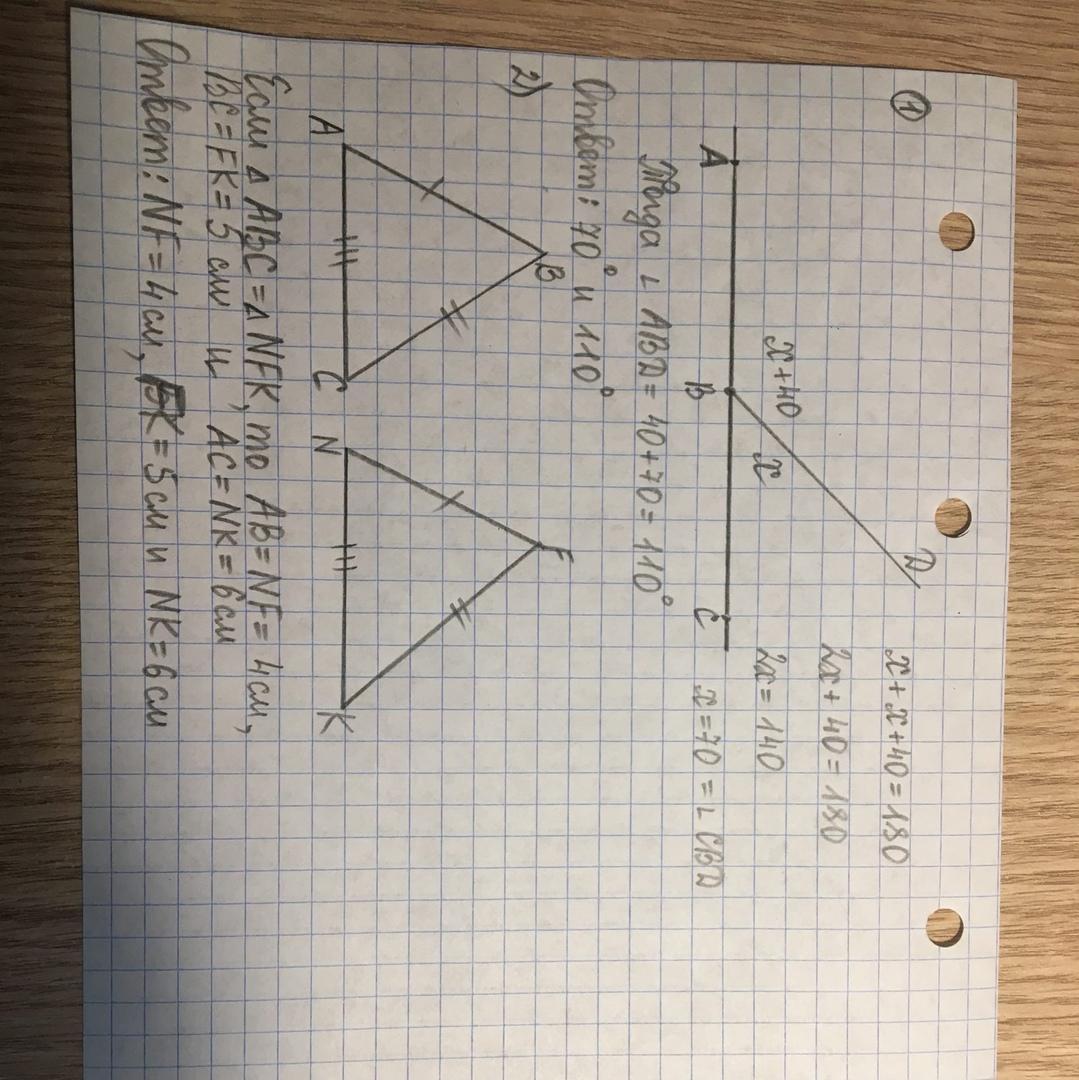 1
x + x + 40 = 180
2x + 40 = 180
2x = 140
x = 70 = ∟ CBD
D
x + 40
x
A
B
C
Тогда ∟ ABD = 40 + 70 = 110°
Ответ: 70° и 110°
2)
B
F
A
C
N
K
Если ▵ ABC = ▵ NFK, то AB = NF = 4 см,
BC = FK = 5 см и AC = NK = 6 см
Ответ: NF = 4 см, FK = 5 см и NK = 6 см